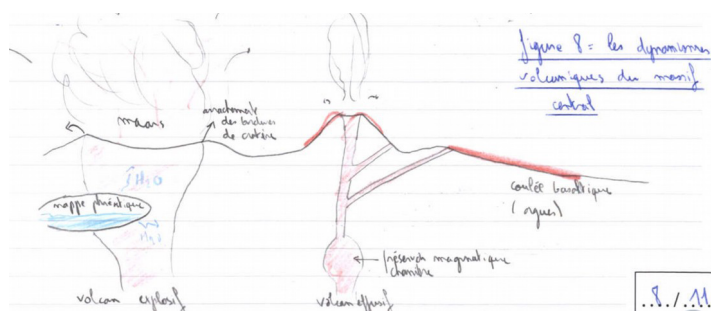 figure 8 = les dynamismes
volcaniques du massif
central
maars
arrachement
des bordures
de cratère
H2O
nappe phréatique
H2O
coulée basaltique
(orgues)
réservoir magmatique
chambre
volcan explosif
volcan effusif
..8../.11